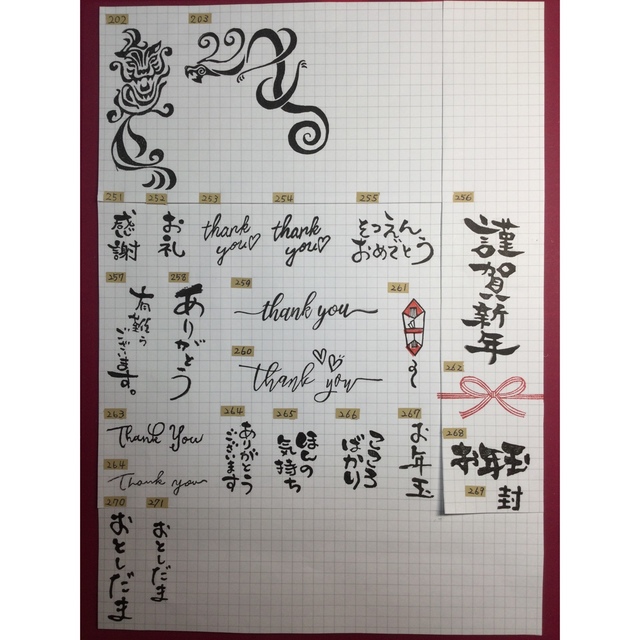 202
203
251
感謝
252
お礼
253
thank
you
254
thank
you
255
そつえん
おめでとう
256
謹賀新年
257
有難う
ございます。
258
ありがとう
259
thank you
260
thank you
261
262
263
Thank You
264
Thank you
264
ありがとう
ございます
265
ほんの
気持ち
266
こころ
ばかり
267
お年玉
268
お年玉
269
封
270
おとしだま
271
おとしだま